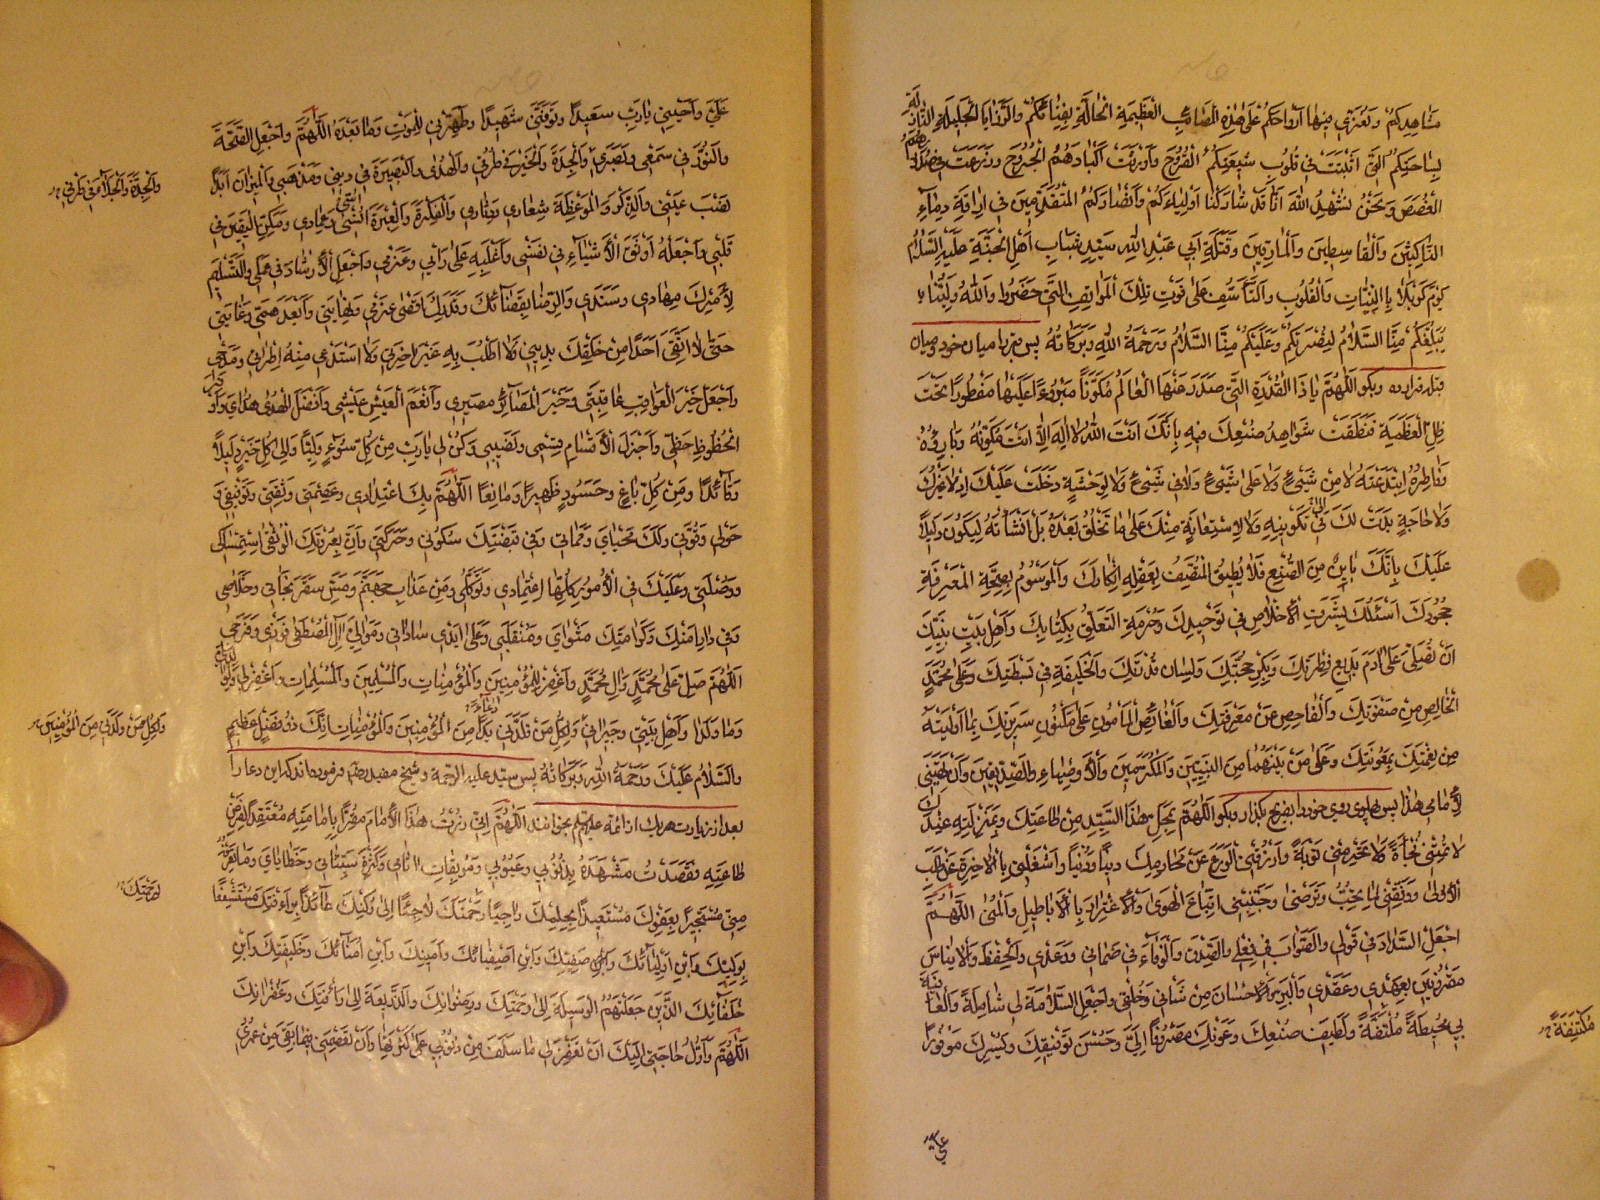 مَشَاهِدِكُمْ وَتُعَزِّي مِنْهَا اَرْوَاحَكُمْ عَلَى هٰذِهِ الْمَصَائِبِ الْعَظِيمَةِ الْحَالَّةِ بِفِنَائِكُمْ وَالرَّزَايَا الْجَلِيلَةِ النَّازِلَةِ
بِسَاحَتِكُمُ الَّتِي اَثْبَتَتْ فِي قُلُوبِ شِيعَتِكُمُ الْقُرُوحَ وَاَوْرَثَتْ اَكْبَادَهُمُ الْجُرُوحَ وَزَرَعَتْ فِي صُدُورِهِمُ
الْغُصَصَ وَنَحْنُ نُشْهِدُ اللّٰهَ اَنَّا قَدْ شَارَكْنَا اَوْلِيَاءَكُمْ وَاَنْصَارَكُمُ الْمُتَقَدِّمِينَ فِي اِرَاقَةِ دِمَاءِ
النَّاكِثِينَ وَالْقَاسِطِينَ وَالْمَارِقِينَ وَقَتَلَةِ اَبِي عَبْدِ اللّٰهِ سَيِّدِ شَبَابِ اَهْلِ الْجَنَّةِ عَلَيْهِ السَّلَامُ
يَوْمَ كَرْبَلَاءَ بِالنِّيَّاتِ وَالْقُلُوبِ وَالتَّأَسُّفِ عَلَى فَوْتِ تِلْكَ الْمَوَاقِفِ الَّتِي حَضَرُوا وَاللّٰهُ وَلِيُّنَا
يُبَلِّغُكُمْ مِنَّا السَّلَامَ لِنُصْرَتِكُمْ وَعَلَيْكُمْ مِنَّا السَّلَامُ وَرَحْمَةُ اللّٰهِ وَبَرَكَاتُهُ پس قبر را ميان خود و ميان
قبله قرار ده وبكو اَللّٰهُمَّ يَا ذَا الْقُدْرَةِ الَّتِي صَدَرَ عَنْهَا الْعَالَمُ مُكَوَّنًا مَبْرُوءًا عَلَيْهَا مَفْطُورًا تَحْتَ
ظِلِّ الْعَظَمَةِ فَنَطَقَتْ شَوَاهِدُ صُنْعِكَ فِيهِ بِاَنَّكَ اَنْتَ اللّٰهُ لَا اِلٰهَ اِلَّا اَنْتَ مُكَوِّنُهُ وَبَارِئُهُ
وَفَاطِرُهُ ابْتَدَعْتَهُ لَا مِنْ شَيْءٍ وَلَا عَلَى شَيْءٍ وَلَا فِي شَيْءٍ وَلَا لِوَحْشَةٍ دَخَلَتْ عَلَيْكَ اِذْ لَا غَيْرُكَ
وَلَا حَاجَةٍ بَدَتْ لَكَ فِي تَكْوِينِهِ وَلَا لِاسْتِعَانَةٍ مِنْكَ عَلَى مَا تَخْلُقُ بَعْدَهُ بَلْ اَنْشَاْتَهُ لِيَكُونَ دَلِيلًا
عَلَيْكَ بِاَنَّكَ بَايِنٌ مِنَ الصُّنْعِ فَلَا يُطِيقُ الْمُنْصِفُ بِعَقْلِهِ اِنْكَارَكَ وَالْمَوْسُومُ بِصِحَّةِ الْمَعْرِفَةِ
جُحُودَكَ اَسْئَلُكَ بِشَرَفِ الْاِخْلَاصِ فِي تَوْحِيدِكَ وَحُرْمَةِ التَّعَلُّقِ بِكِتَابِكَ وَاَهْلِ بَيْتِ نَبِيِّكَ
اَنْ تُصَلِّيَ عَلَى اٰدَمَ بَدِيعِ فِطْرَتِكَ وَبِكْرِ حُجَّتِكَ وَلِسَانِ قُدْرَتِكَ وَالْخَلِيفَةِ فِي بَسِيطَتِكَ وَعَلَى مُحَمَّدٍ
الْخَالِصِ مِنْ صَفْوَتِكَ وَالْفَاحِصِ عَنْ مَعْرِفَتِكَ وَالْغَائِصِ الْمَأْمُونِ عَلَى مَكْنُونِ سَرِيرَتِكَ بِمَا اَوْلَيْتَهُ
مِنْ نِعْمَتِكَ بِمَعُونَتِكَ وَعَلَى مَنْ بَيْنَهُمَا مِنَ النَّبِيِّينَ وَالْمُكَرَّمِينَ وَالْاَوْصِيَاءِ وَالصِّدِّيقِينَ وَاَنْ تَهَبَنِي
لِاِمَامِي هٰذَا پس پهلوى روى خود را بضريح بكذار وبكو اَللّٰهُمَّ بِمَحَلِّ هٰذَا السَّيِّدِ مِنْ طَاعَتِكَ وَبِمَنْزِلَتِهِ عِنْدَكَ
لَا تُمِتْنِي فُجَاةً وَلَا تَحْرِمْنِي تَوْبَةً وَارْزُقْنِي الْوَرَعَ عَنْ مَحَارِمِكَ دِينًا وَدُنْيًا وَاشْغَلْنِي بِالْاٰخِرَةِ عَنْ طَلَبِ
الْاُولٰى وَوَفِّقْنِي لِمَا تُحِبُّ وَتَرْضٰى وَجَنِّبْنِي اتِّبَاعَ الْهَوٰى وَالْاِغْتِرَارَ بِالْاَبَاطِيلِ وَالْمُنٰى اَللّٰهُمَّ
اجْعَلِ السَّدَادَ فِي قَوْلِي وَالصَّوَابَ فِي فِعْلِي وَالصِّدْقَ وَالْوَفَاءَ فِي ضَمَانِي وَوَعْدِي وَالْحِفْظَ وَالْاِينَاسَ
مَقْرُونَيْنِ بِعَهْدِي وَعَقْدِي وَالْبِرَّ وَالْاِحْسَانَ مِنْ شَأْنِي وَخُلْقِي وَاجْعَلِ السَّلَامَةَ لِي شَامِلَةً وَالْعَافِيَةَ
بِي مُحِيطَةً مُلْتَفَّةً وَلَطِيفَ صُنْعِكَ وَعَوْنِكَ مَصْرُوفًا اِلَيَّ وَحُسْنَ تَوْفِيقِكَ وَيُسْرِكَ مَوْفُورًا
مُكْتَنِفَةً
عَلَيَّ
عَلَيَّ وَاَحْيِنِي يَا رَبِّ سَعِيدًا وَتَوَفَّنِي شَهِيدًا وَطَهِّرْنِي لِلْمَوْتِ وَمَا بَعْدَهُ اَللّٰهُمَّ وَاجْعَلِ الصِّحَّةَ
وَالنُّورَ فِي سَمْعِي وَبَصَرِي وَالْجِدَةَ وَالْخَيْرَ فِي طُرُقِي وَالْهُدٰى وَالْبَصِيرَةَ فِي دِينِي وَمَذْهَبِي وَالْمِيزَانَ اَبَدًا
نُصْبَ عَيْنِي وَالذِّكْرَ وَالْمَوْعِظَةَ شِعَارِي وَدِثَارِي وَالْفِكْرَةَ وَالْعِبْرَةَ اُنْسِي وَعِمَادِي وَمَكِّنِ الْيَقِينَ فِي
قَلْبِي وَاجْعَلْهُ اَوْثَقَ الْاَشْيَاءِ فِي نَفْسِي وَاَغْلِبْهُ عَلَى رَأْيِي وَعَزْمِي وَاجْعَلِ الْاِرْشَادَ فِي عَمَلِي وَالتَّسْلِيمَ
لِاَمْرِكَ مِهَادِي وَسَنَدِي وَالرِّضَا بِقَضَائِكَ وَقَدَرِكَ اَقْصٰى عَزْمِي وَنِهَايَتِي وَاَبْعَدَ هَمِّي وَغَايَتِي
حَتّٰى لَا اَتَّقِيَ اَحَدًا مِنْ خَلْقِكَ بِدِينِي وَلَا اَطْلُبَ بِهِ غَيْرَ اٰخِرَتِي وَلَا اَسْتَدْعِيَ مِنْهُ اِطْرَائِي وَمَدْحِي
وَاجْعَلْ خَيْرَ الْعَوَاقِبِ عَاقِبَتِي وَخَيْرَ الْمَصَائِرِ مَصِيرِي وَاَنْعَمَ الْعَيْشِ عَيْشِي وَاَفْضَلَ الْهُدٰى هُدَايَ وَاَوْفَرَ
الْحُظُوظِ حَظِّي وَاَجْزَلَ الْاَقْسَامِ قِسْمِي وَنَصِيبِي وَكُنْ لِي يَا رَبِّ مِنْ كُلِّ سُوءٍ وَلِيًّا وَاِلٰى كُلِّ خَيْرٍ دَلِيلًا
وَقَائِدًا وَمِنْ كُلِّ بَاغٍ وَحَسُودٍ ظَهِيرًا وَمَانِعًا اَللّٰهُمَّ بِكَ اعْتِدَادِي وَعِصْمَتِي وَثِقَتِي وَتَوْفِيقِي وَ
حَوْلِي وَقُوَّتِي وَلَكَ مَحْيَايَ وَمَمَاتِي وَفِي قَبْضَتِكَ سُكُونِي وَحَرَكَتِي وَاِنَّ بِعُرْوَتِكَ الْوُثْقٰى اسْتِمْسَاكِي
وَوُصْلَتِي وَعَلَيْكَ فِي الْاُمُورِ كُلِّهَا اعْتِمَادِي وَتَوَكُّلِي وَمِنْ عَذَابِ جَهَنَّمَ وَمَسِّ سَقَرَ نَجَاتِي وَخَلَاصِي
وَفِي دَارِ اَمْنِكَ وَكَرَامَتِكَ مَثْوَايَ وَمُنْقَلَبِي وَعَلَى اَيْدِي سَادَاتِي وَمَوَالِيَّ اٰلِ الْمُصْطَفٰى فَوْزِي وَفَرَجِي
اَللّٰهُمَّ صَلِّ عَلَى مُحَمَّدٍ وَاٰلِ مُحَمَّدٍ وَاغْفِرْ لِلْمُؤْمِنِينَ وَالْمُؤْمِنَاتِ وَالْمُسْلِمِينَ وَالْمُسْلِمَاتِ وَاغْفِرْ لِي وَلِوَالِدَيَّ
وَمَا وَلَدَا وَاَهْلِ بَيْتِي وَجِيرَانِي وَلِكُلِّ مَنْ قَلَّدَنِي يَدًا مِنَ الْمُؤْمِنِينَ وَالْمُؤْمِنَاتِ اِنَّكَ ذُو فَضْلٍ عَظِيمٍ
وَالسَّلَامُ عَلَيْكَ وَرَحْمَةُ اللّٰهِ وَبَرَكَاتُهُ پس سيد عليه الرحمة وشيخ مفيد رضه فرموده اند كه اين دعا را
بعد از زيارت هر يك از ائمه عليهم السلم بخوانند اَللّٰهُمَّ اِنِّي زُرْتُ هٰذَا الْاِمَامَ مُقِرًّا بِاِمَامَتِهِ مُعْتَقِدًا لِفَرْضِ
طَاعَتِهِ فَقَصَدْتُ مَشْهَدَهُ بِذُنُوبِي وَعُيُوبِي وَمُوبِقَاتِ اٰثَامِي وَكَثْرَةِ سَيِّئَاتِي وَخَطَايَايَ وَمَا تَعْرِفُهُ
مِنِّي مُسْتَجِيرًا بِعَفْوِكَ مُسْتَعِيذًا بِحِلْمِكَ رَاجِيًا رَحْمَتَكَ لَاجِئًا اِلٰى رُكْنِكَ عَائِذًا بِرَأْفَتِكَ مُسْتَشْفِعًا
بِوَلِيِّكَ وَابْنِ اَوْلِيَائِكَ وَصَفِيِّكَ وَابْنِ اَصْفِيَائِكَ وَاَمِينِكَ وَابْنِ اُمَنَائِكَ وَخَلِيفَتِكَ وَابْنِ
خُلَفَائِكَ الَّذِينَ جَعَلْتَهُمُ الْوَسِيلَةَ اِلٰى رَحْمَتِكَ وَرِضْوَانِكَ وَالذَّرِيعَةَ اِلٰى رَأْفَتِكَ وَغُفْرَانِكَ
اَللّٰهُمَّ وَاَوَّلُ حَاجَتِي اِلَيْكَ اَنْ تَغْفِرَ لِي مَا سَلَفَ مِنْ ذُنُوبِي عَلَى كَثْرَتِهَا وَاَنْ تَعْصِمَنِي فِيمَا بَقِيَ مِنْ عُمْرِي
وَلِكُلِّ مَنْ وَلَدَنِي مِنَ الْمُؤْمِنِينَ